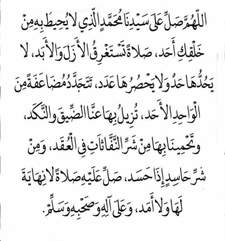 اللَّهُمَّ صَلِّ عَلَى سَيِّدِنَا مُحَمَّدٍ الَّذِي لَا يُحِيطُ بِهِ مِنْ
خَلْقِكَ أَحَد، صَلَاةً تَسْتَغْرِقُ الْأَزَلَ وَالْأَبَد، لَا
يَحُدُّهَا حَدٌّ وَلَا يَحْصُرُهَا عَدَد، تَتَجَدَّدُ مُضَاعَفَةً مِنَ
الْوَاحِدِ الْأَحَد، تُزِيلُ بِهَا عَنَّا الضِّيقَ وَالنَّكَد،
وَتَحْمِينَا بِهَا مِنْ شَرِّ النَّفَّاثَاتِ فِي الْعُقَد، وَمِنْ
شَرِّ حَاسِدٍ إِذَا حَسَد، صَلِّ عَلَيْهِ صَلَاةً لَا نِهَايَةَ
لَهَا وَلَا أَمَد، وَعَلَى آلِهِ وَصَحْبِهِ وَسَلِّمْ.